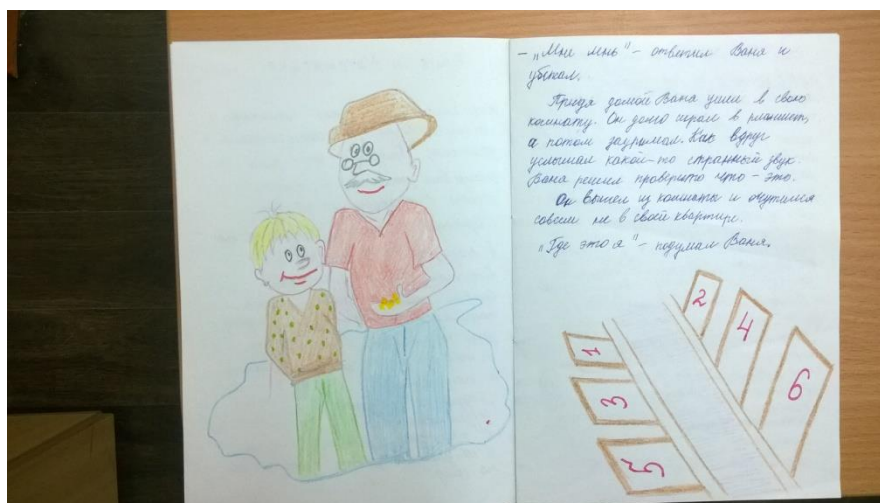 – „Мне лень" – ответил Ваня и
убежал.
Придя домой Ваня ушел в свою
комнату. Он долго играл в планшет,
а потом задремал. Как вдруг
услышал какой-то странный звук.
Ваня решил проверить что – это.
Он вышел из комнаты и очутился
совсем не в своей квартире.
„Где это я" – подумал Ваня.
2
4
6
1
3
5